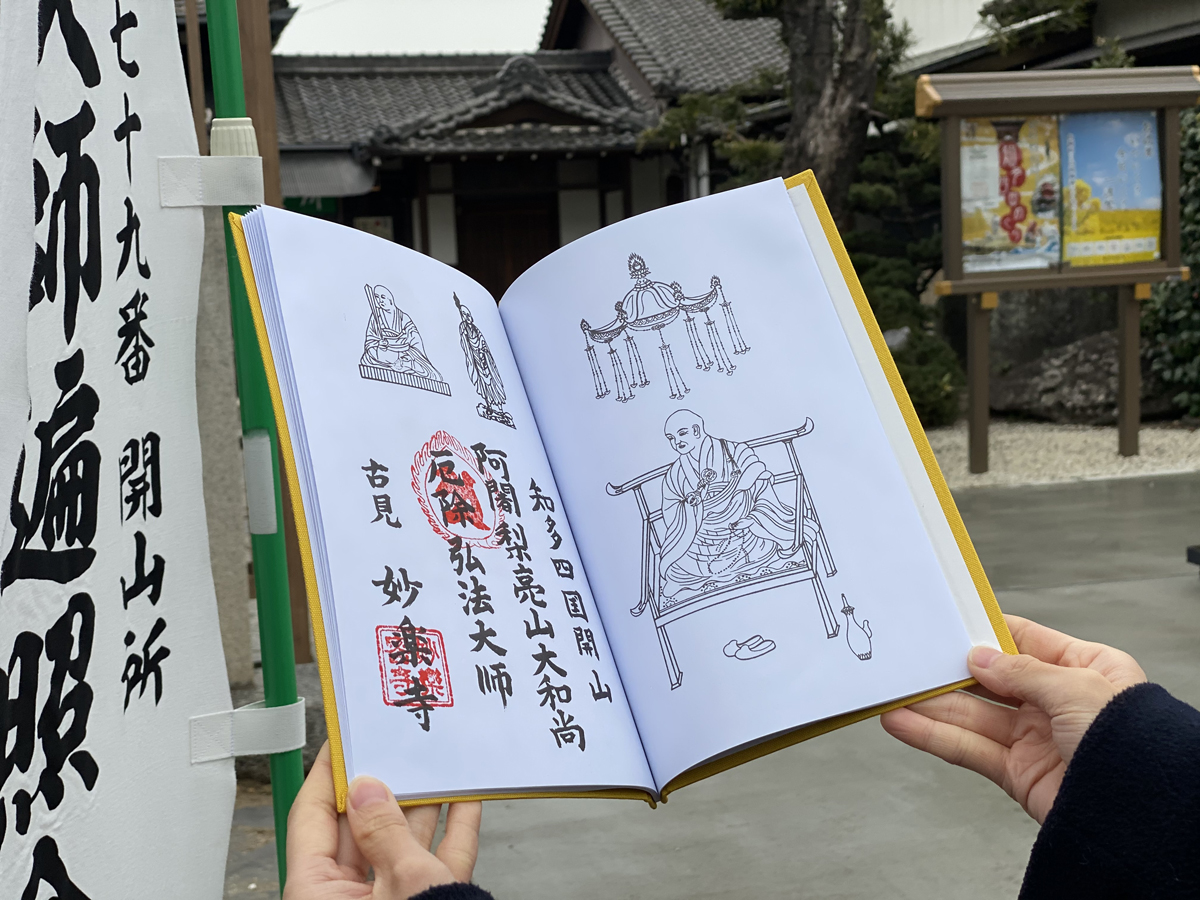 七十九番 開山所
大師遍照金
知多四国開山
阿闍梨亮山大和尚
厄除弘法大師
古見 妙楽寺